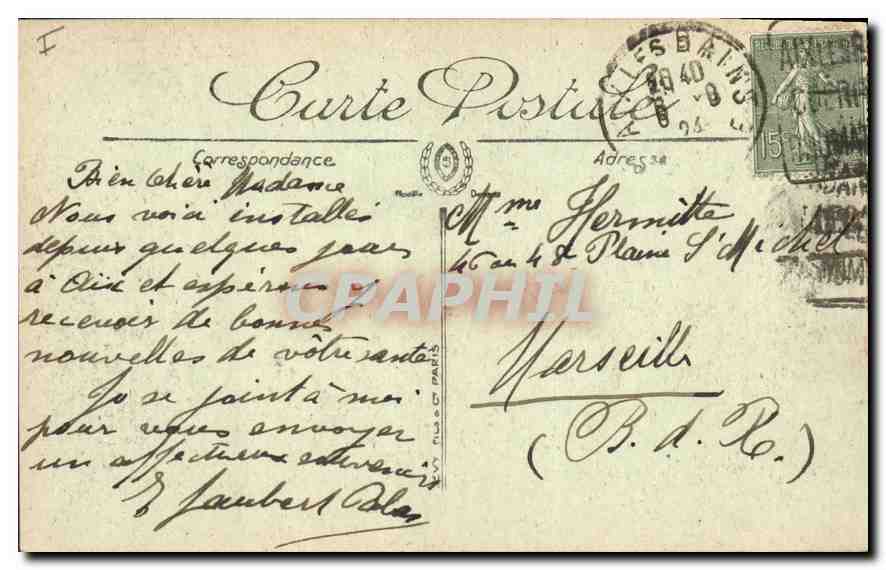 I
Carte Postale
Correspondance
Adresse
AIX LES BAINS
40
24
15
Bien Chère Madame
Nous voici installés
depuis quelques jours
à Aix et espérons y
recevoir de bonnes
nouvelles de vôtre santé
Jo se joint à moi
pour vous envoyer
un affectueux souvenir
E Jaubert
Mme Hermitte
46 ou 48 Plaine St Michel
Marseille
(B. d. R.)
CPARAPHIL
PARIS